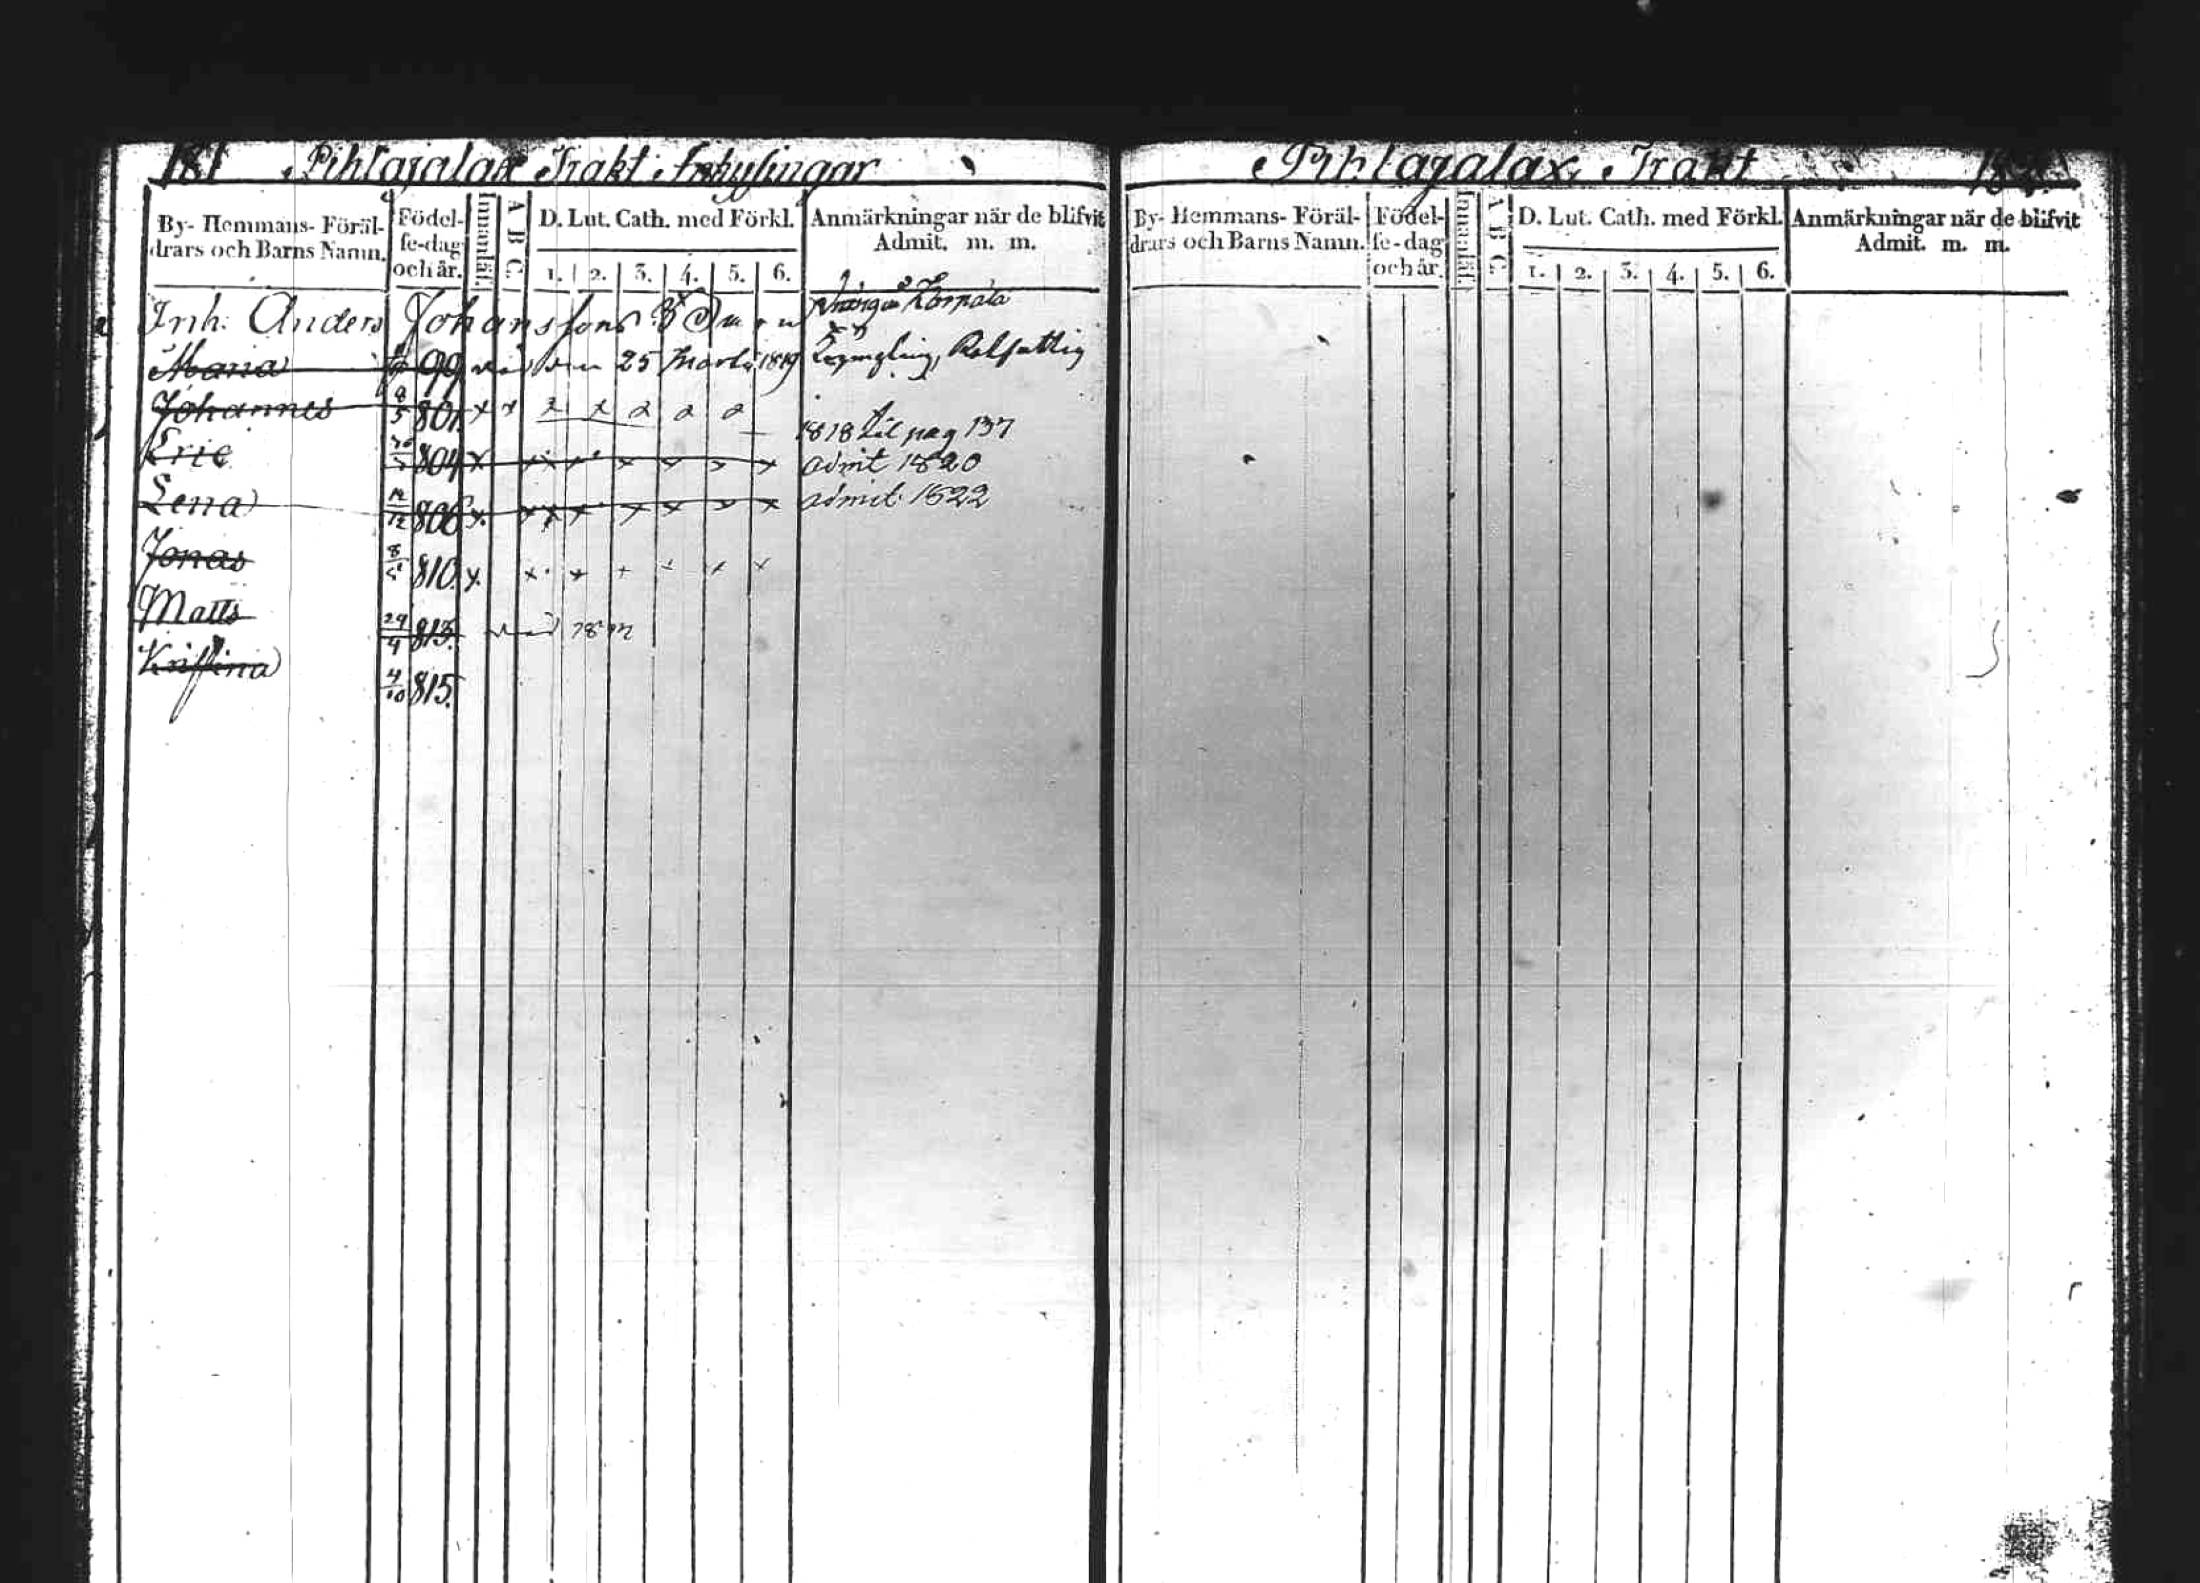 181 Pihlajalax Trakt Inhysingar
By- Hemmans- Föräl-
drars och Barns Namn.
Födel-
se-dag
och år.
Innanläs.
A B C.
D. Lut. Cath. med Förkl.
1. 2. 3. 4. 5. 6.
Anmärkningar när de blifvit
Admit. m. m.
Inh: Anders Johanssons
Maria 99 den 25 Martii 1819
Johannes 8/5 801. x x
1818 til pag 137
Eric 804 x x x x x x x x admit 1820
Lena 12/12 806 x x x x x x x x admit. 1822
Jonas 810. x. x. x + x x x
Matts 29/4 813.
Kristina 4/10 815.
Pihlajalax Trakt 182.
By- Hemmans- Föräl-
drars och Barns Namn.
Födel-
se-dag
och år.
Innanläs.
A B C.
D. Lut. Cath. med Förkl.
1. 2. 3. 4. 5. 6.
Anmärkningar när de blifvit
Admit. m. m.